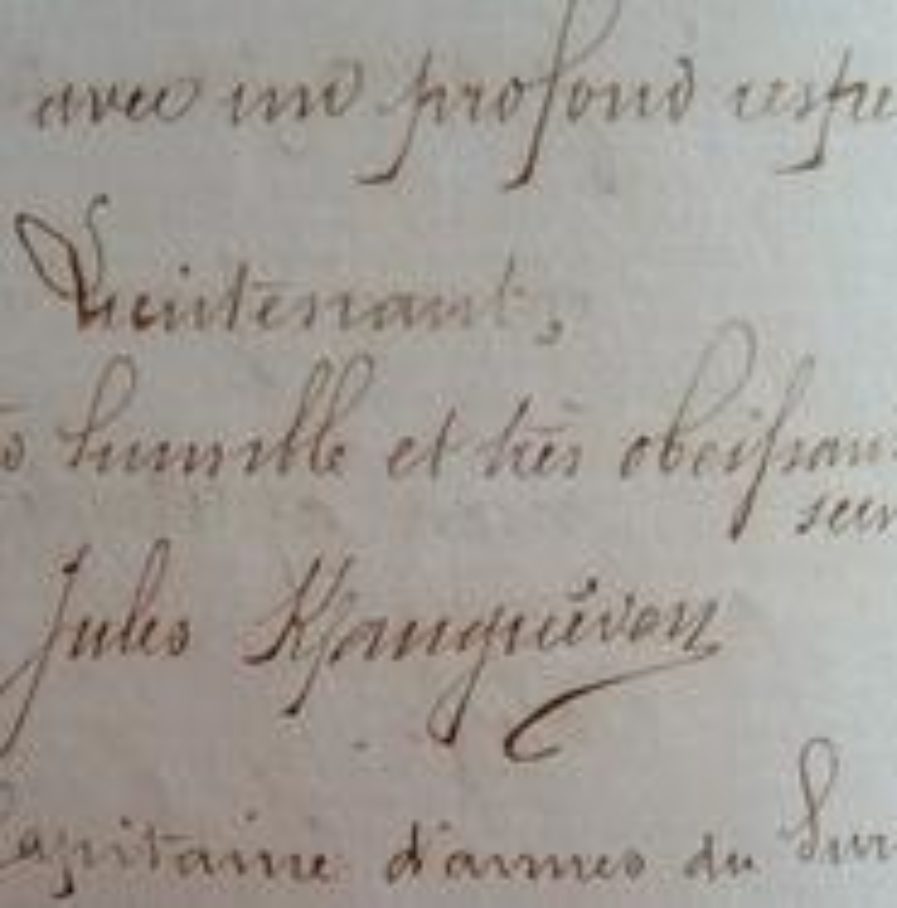 avec un profond respe
Lieutenant,
s humble et très obeissan
ser
Jules Kjanguévan
Capitaine d'armes du Sur